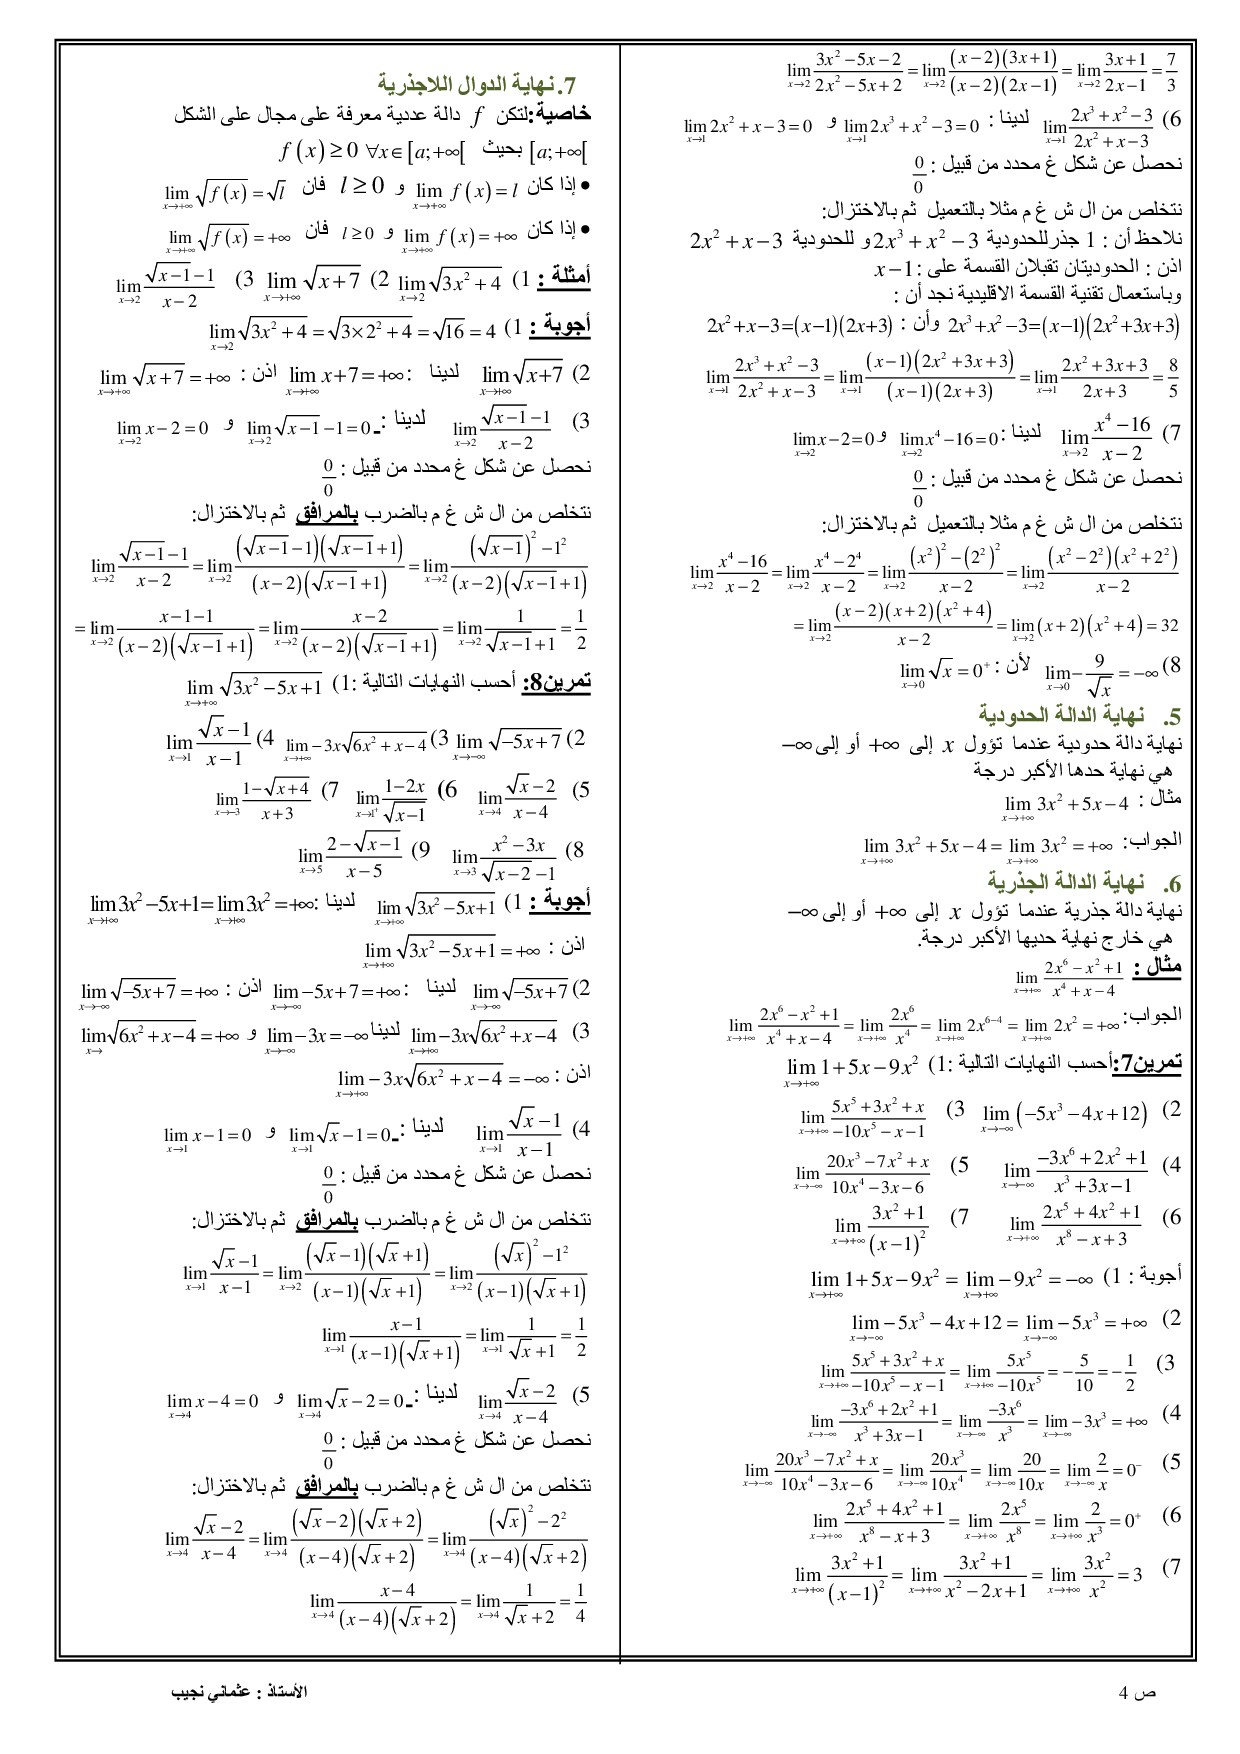 lim_{x→2} (3x²−5x−2)/(2x²−5x+2) = lim_{x→2} ((x−2)(3x+1))/((x−2)(2x−1)) = lim_{x→2} (3x+1)/(2x−1) = 7/3
6) lim_{x→1} (2x³+x²−3)/(2x²+x−3) لدينا : lim_{x→1} 2x³+x²−3=0 و lim_{x→1} 2x²+x−3=0
نحصل عن شكل غ محدد من قبيل : 0/0
نتخلص من ال ش غ م مثلا بالتعميل ثم بالاختزال:
نلاحظ أن : 1 جذرللحدودية 2x³+x²−3 و للحدودية 2x²+x−3
اذن : الحدوديتان تقبلان القسمة على : x−1
وباستعمال تقنية القسمة الاقليدية نجد أن :
2x³+x²−3=(x−1)(2x²+3x+3) وأن : 2x²+x−3=(x−1)(2x+3)
lim_{x→1} (2x³+x²−3)/(2x²+x−3) = lim_{x→1} ((x−1)(2x²+3x+3))/((x−1)(2x+3)) = lim_{x→1} (2x²+3x+3)/(2x+3) = 8/5
7) lim_{x→2} (x⁴−16)/(x−2) لدينا : lim_{x→2} x⁴−16=0 و lim_{x→2} x−2=0
نحصل عن شكل غ محدد من قبيل : 0/0
نتخلص من ال ش غ م مثلا بالتعميل ثم بالاختزال:
lim_{x→2} (x⁴−16)/(x−2) = lim_{x→2} (x⁴−2⁴)/(x−2) = lim_{x→2} ((x²)²−(2²)²)/(x−2) = lim_{x→2} ((x²−2²)(x²+2²))/(x−2)
= lim_{x→2} ((x−2)(x+2)(x²+4))/(x−2) = lim_{x→2} (x+2)(x²+4) = 32
8) lim_{x→0} −9/√x = −∞ لأن : lim_{x→0} √x = 0⁺
5. نهاية الدالة الحدودية
نهاية دالة حدودية عندما تؤول x إلى +∞ أو إلى −∞
هي نهاية حدها الأكبر درجة
مثال : lim_{x→+∞} 3x²+5x−4
الجواب: lim_{x→+∞} 3x²+5x−4 = lim_{x→+∞} 3x² = +∞
6. نهاية الدالة الجذرية
نهاية دالة جذرية عندما تؤول x إلى +∞ أو إلى −∞
هي خارج نهاية حديها الأكبر درجة.
مثال : lim_{x→+∞} (2x⁶−x²+1)/(x⁴+x−4)
الجواب: lim_{x→+∞} (2x⁶−x²+1)/(x⁴+x−4) = lim_{x→+∞} 2x⁶/x⁴ = lim_{x→+∞} 2x⁶⁻⁴ = lim_{x→+∞} 2x² = +∞
تمرين7: أحسب النهايات التالية :1) lim_{x→+∞} 1+5x−9x²
2) lim_{x→−∞} (−5x³−4x+12) 3) lim_{x→+∞} (5x⁵+3x²+x)/(−10x⁵−x−1)
4) lim_{x→−∞} (−3x⁶+2x²+1)/(x³+3x−1) 5) lim_{x→−∞} (20x³−7x²+x)/(10x⁴−3x−6)
6) lim_{x→+∞} (2x⁵+4x²+1)/(x⁸−x+3) 7) lim_{x→+∞} (3x²+1)/(x−1)²
أجوبة : 1) lim_{x→+∞} 1+5x−9x² = lim_{x→+∞} −9x² = −∞
2) lim_{x→−∞} −5x³−4x+12 = lim_{x→−∞} −5x³ = +∞
3) lim_{x→+∞} (5x⁵+3x²+x)/(−10x⁵−x−1) = lim_{x→+∞} 5x⁵/−10x⁵ = −5/10 = −1/2
4) lim_{x→−∞} (−3x⁶+2x²+1)/(x³+3x−1) = lim_{x→−∞} −3x⁶/x³ = lim_{x→−∞} −3x³ = +∞
5) lim_{x→−∞} (20x³−7x²+x)/(10x⁴−3x−6) = lim_{x→−∞} 20x³/10x⁴ = lim_{x→−∞} 20/10x = lim_{x→−∞} 2/x = 0⁻
6) lim_{x→+∞} (2x⁵+4x²+1)/(x⁸−x+3) = lim_{x→+∞} 2x⁵/x⁸ = lim_{x→+∞} 2/x³ = 0⁺
7) lim_{x→+∞} (3x²+1)/(x−1)² = lim_{x→+∞} (3x²+1)/(x²−2x+1) = lim_{x→+∞} 3x²/x² = 3
7. نهاية الدوال اللاجذرية
خاصية: لتكن f دالة عددية معرفة على مجال على الشكل
[a;+∞[ بحيث f(x)≥0 ∀x∈[a;+∞[
• إذا كان lim_{x→+∞} f(x)=l و l≥0 فان lim_{x→+∞} √(f(x))=√l
• إذا كان lim_{x→+∞} f(x)=+∞ و l≥0 فان lim_{x→+∞} √(f(x))=+∞
أمثلة : 1) lim_{x→2} √(3x²+4) 2) lim_{x→+∞} √(x+7) 3) lim_{x→2} (√(x−1)−1)/(x−2)
أجوبة : 1) lim_{x→2} √(3x²+4) = √(3×2²+4) = √16 = 4
2) lim_{x→+∞} √(x+7) لدينا : lim_{x→+∞} x+7=+∞ اذن : lim_{x→+∞} √(x+7)=+∞
3) lim_{x→2} (√(x−1)−1)/(x−2) لدينا : lim_{x→2} √(x−1)−1=0 و lim_{x→2} x−2=0
نحصل عن شكل غ محدد من قبيل : 0/0
نتخلص من ال ش غ م بالضرب بالمرافق ثم بالاختزال:
lim_{x→2} (√(x−1)−1)/(x−2) = lim_{x→2} ((√(x−1)−1)(√(x−1)+1))/((x−2)(√(x−1)+1)) = lim_{x→2} ((√(x−1))²−1²)/((x−2)(√(x−1)+1))
= lim_{x→2} (x−1−1)/((x−2)(√(x−1)+1)) = lim_{x→2} (x−2)/((x−2)(√(x−1)+1)) = lim_{x→2} 1/(√(x−1)+1) = 1/2
تمرين8: أحسب النهايات التالية :1) lim_{x→+∞} √(3x²−5x+1)
2) lim_{x→−∞} √(−5x+7) 3) lim_{x→+∞} −3x√(6x²+x−4) 4) lim_{x→1} (√x−1)/(x−1)
5) lim_{x→4} (√x−2)/(x−4) 6) lim_{x→1⁺} (1−2x)/√(x−1) 7) lim_{x→−3} (1−√(x+4))/(x+3)
8) lim_{x→3} (x²−3x)/(√(x−2)−1) 9) lim_{x→5} (2−√(x−1))/(x−5)
أجوبة : 1) lim_{x→+∞} √(3x²−5x+1) لدينا : lim_{x→+∞} 3x²−5x+1 = lim_{x→+∞} 3x² = +∞
اذن : lim_{x→+∞} √(3x²−5x+1) = +∞
2) lim_{x→−∞} √(−5x+7) لدينا : lim_{x→−∞} −5x+7=+∞ اذن : lim_{x→−∞} √(−5x+7)=+∞
3) lim_{x→+∞} −3x√(6x²+x−4) لدينا lim_{x→−∞} −3x=−∞ و lim_{x→} √(6x²+x−4)=+∞
اذن : lim_{x→+∞} −3x√(6x²+x−4) = −∞
4) lim_{x→1} (√x−1)/(x−1) لدينا : lim_{x→1} √x−1=0 و lim_{x→1} x−1=0
نحصل عن شكل غ محدد من قبيل : 0/0
نتخلص من ال ش غ م بالضرب بالمرافق ثم بالاختزال:
lim_{x→1} (√x−1)/(x−1) = lim_{x→2} ((√x−1)(√x+1))/((x−1)(√x+1)) = lim_{x→2} ((√x)²−1²)/((x−1)(√x+1))
lim_{x→1} (x−1)/((x−1)(√x+1)) = lim_{x→1} 1/(√x+1) = 1/2
5) lim_{x→4} (√x−2)/(x−4) لدينا : lim_{x→4} √x−2=0 و lim_{x→4} x−4=0
نحصل عن شكل غ محدد من قبيل : 0/0
نتخلص من ال ش غ م بالضرب بالمرافق ثم بالاختزال:
lim_{x→4} (√x−2)/(x−4) = lim_{x→4} ((√x−2)(√x+2))/((x−4)(√x+2)) = lim_{x→4} ((√x)²−2²)/((x−4)(√x+2))
lim_{x→4} (x−4)/((x−4)(√x+2)) = lim_{x→4} 1/(√x+2) = 1/4
ص 4
الأستاذ : عثماني نجيب